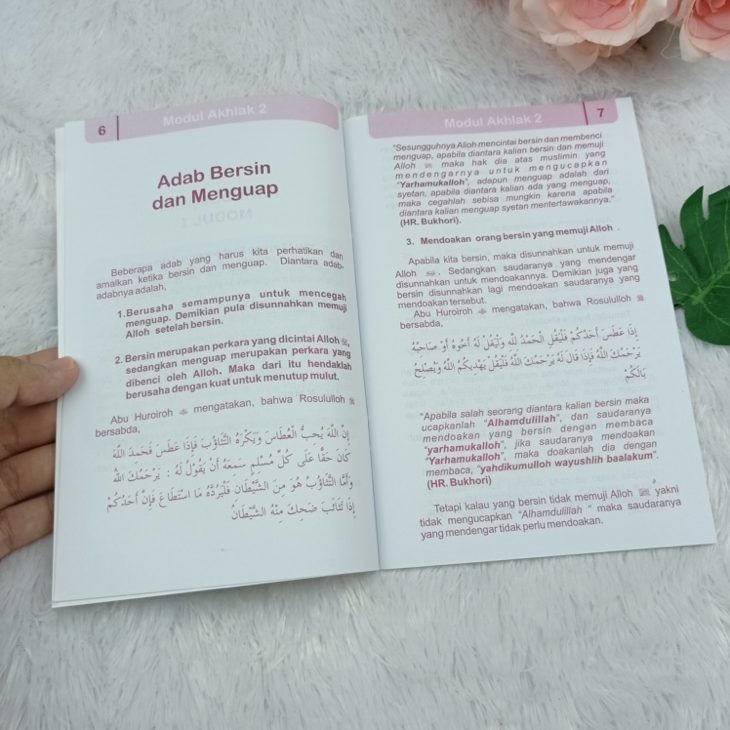 6
Modul Akhlak 2
Adab Bersin
dan Menguap
Beberapa adab yang harus kita perhatikan dan
amalkan ketika bersin dan menguap. Diantara adab-
adabnya adalah,
1.Berusaha semampunya untuk mencegah
menguap. Demikian pula disunnahkan memuji
Alloh setelah bersin.
2. Bersin merupakan perkara yang dicintai Alloh ﷻ,
sedangkan menguap merupakan perkara yang
dibenci oleh Alloh. Maka dari itu hendaklah
berusaha dengan kuat untuk menutup mulut.
Abu Huroiroh mengatakan, bahwa Rosululloh ﷺ
bersabda,
إِنَّ اللَّهَ يُحِبُّ الْعُطَاسَ وَيَكْرَهُ التَّثَاؤُبَ فَإِذَا عَطَسَ فَحَمِدَ اللَّهَ
كَانَ حَقًّا عَلَى كُلِّ مُسْلِمٍ سَمِعَهُ أَنْ يَقُوْلَ لَهُ : يَرْحَمُكَ اللهُ
وَأَمَّا التَّثَاؤُبُ هُوَ مِنَ الشَّيْطَانِ فَلْيَرُدَّهُ مَا اسْتَطَاعَ فَإِنَّ أَحَدَكُمْ
إِذَا تَثَائَبَ ضَحِكَ مِنْهُ الشَّيْطَانُ
Modul Akhlak 2
7
"Sesungguhnya Alloh mencintai bersin dan membenci
menguap, apabila diantara kalian bersin dan memuji
Alloh ﷻ maka hak dia atas muslimin yang
mendengarnya untuk mengucapkan
"Yarhamukalloh", adapun menguap adalah dari
syetan, apabila diantara kalian ada yang menguap,
maka cegahlah sebisa mungkin karena apabila
diantara kalian menguap syetan mentertawakannya."
(HR. Bukhori).
3. Mendoakan orang bersin yang memuji Alloh .
Apabila kita bersin, maka disunnahkan untuk memuji
Alloh ﷻ. Sedangkan saudaranya yang mendengar
disunnahkan untuk mendoakannya. Demikian juga yang
bersin disunnahkan lagi mendoakan saudaranya yang
mendoakan tersebut.
Abu Huroiroh mengatakan, bahwa Rosululloh ﷺ
bersabda,
إِذَا عَطَسَ أَحَدُكُمْ فَلْيَقُلِ الْحَمْدُ لِلَّهِ وَلْيَقُلْ لَهُ أَخُوْهُ أَوْ صَاحِبُهُ
يَرْحَمُكَ اللَّهُ فَإِذَا قَالَ لَهُ يَرْحَمُكَ اللَّهُ فَلْيَقُلْ يَهْدِيكُمُ اللَّهُ وَيُصْلِحُ
بَالَكُمْ
"Apabila salah seorang diantara kalian bersin maka
ucapkanlah "Alhamdulillah", dan saudaranya
mendoakan yang bersin dengan membaca
"yarhamukalloh", jika saudaranya mendoakan
"Yarhamukalloh", maka doakanlah dia dengan
membaca, "yahdikumulloh wayushlih baalakum".
(HR. Bukhori)
Tetapi kalau yang bersin tidak memuji Alloh ﷻ yakni
tidak mengucapkan "Alhamdulillah " maka saudaranya
yang mendengar tidak perlu mendoakan.